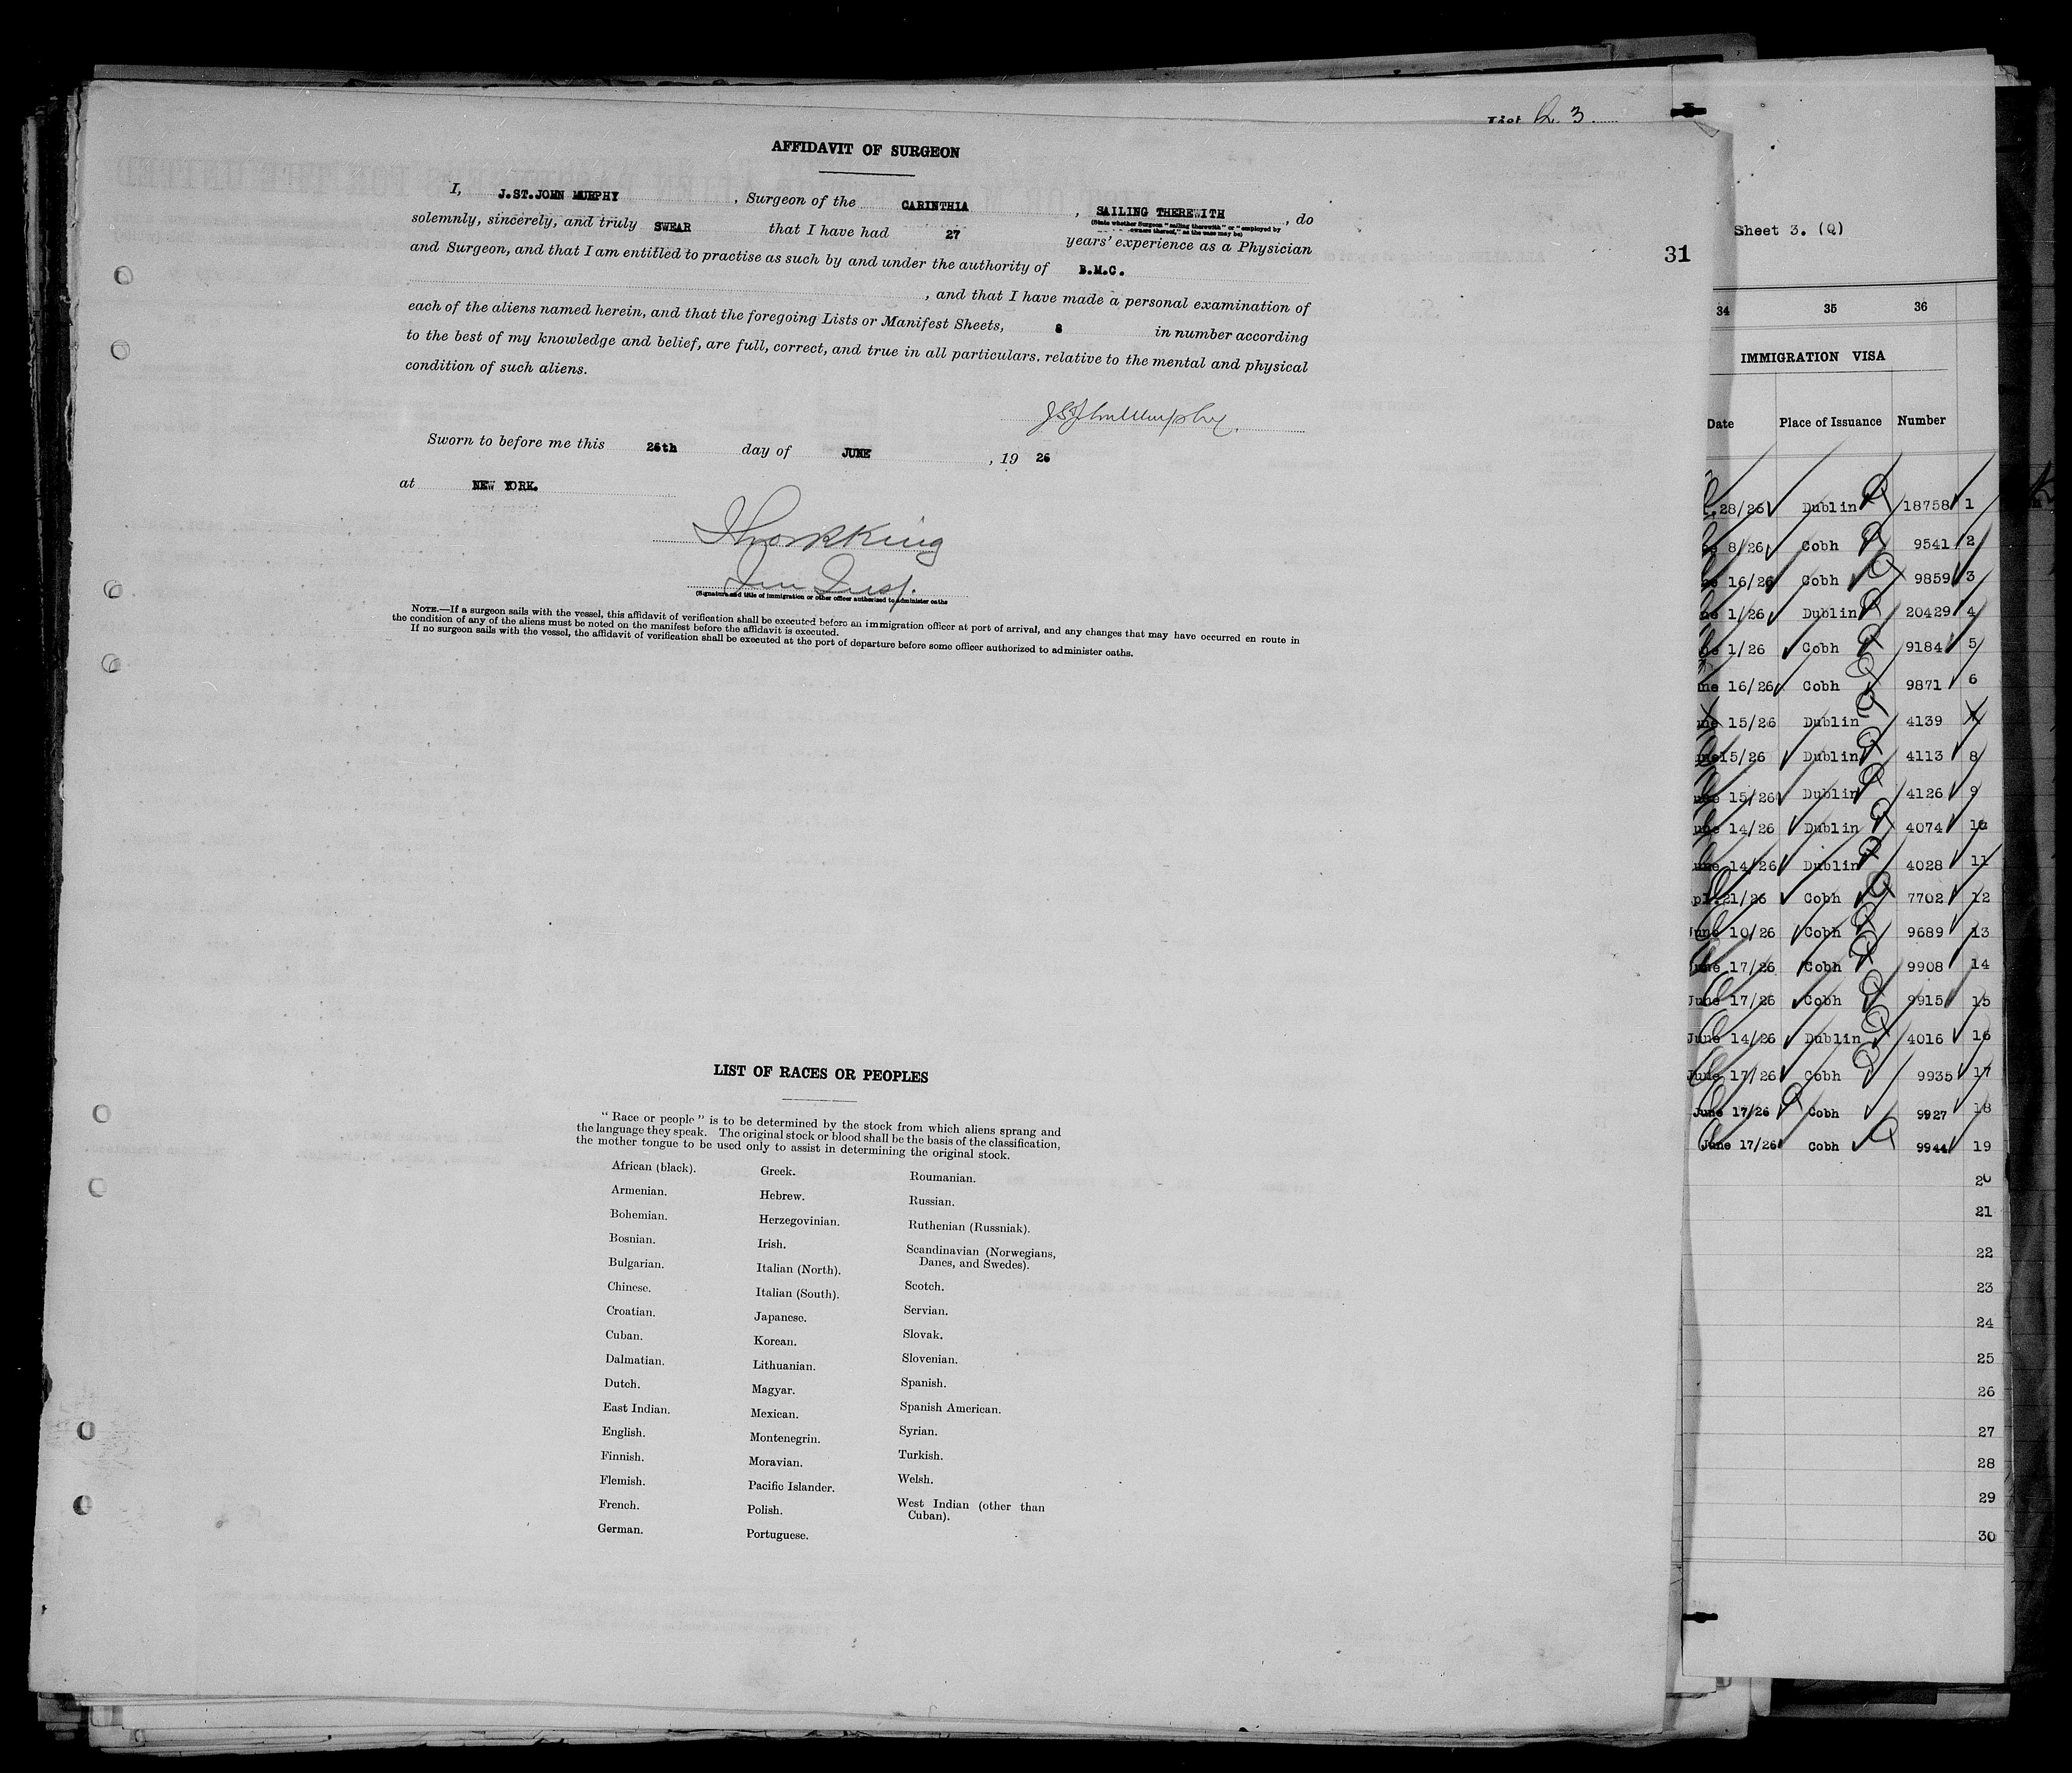 List Q. 3
AFFIDAVIT OF SURGEON
I, J.ST.JOHN MURPHY, Surgeon of the CARINTHIA, SAILING THEREWITH, do
(State whether Surgeon "sailing therewith" or "employed by
owners thereof," as the case may be)
solemnly, sincerely, and truly SWEAR that I have had 27 years' experience as a Physician
and Surgeon, and that I am entitled to practise as such by and under the authority of B.M.C.
, and that I have made a personal examination of
each of the aliens named herein, and that the foregoing Lists or Manifest Sheets, 8 in number according
to the best of my knowledge and belief, are full, correct, and true in all particulars, relative to the mental and physical
condition of such aliens.
J St John Murphy.
Sworn to before me this 26th day of JUNE, 19 26
at NEW YORK.
King
Imm Insp.
(Signature and title of immigration or other officer authorized to administer oaths
NOTE.—If a surgeon sails with the vessel, this affidavit of verification shall be executed before an immigration officer at port of arrival, and any changes that may have occurred en route in
the condition of any of the aliens must be noted on the manifest before the affidavit is executed.
If no surgeon sails with the vessel, the affidavit of verification shall be executed at the port of departure before some officer authorized to administer oaths.
LIST OF RACES OR PEOPLES
"Race or people" is to be determined by the stock from which aliens sprang and
the language they speak. The original stock or blood shall be the basis of the classification,
the mother tongue to be used only to assist in determining the original stock.
African (black).
Armenian.
Bohemian.
Bosnian.
Bulgarian.
Chinese.
Croatian.
Cuban.
Dalmatian.
Dutch.
East Indian.
English.
Finnish.
Flemish.
French.
German.
Greek.
Hebrew.
Herzegovinian.
Irish.
Italian (North).
Italian (South).
Japanese.
Korean.
Lithuanian.
Magyar.
Mexican.
Montenegrin.
Moravian.
Pacific Islander.
Polish.
Portuguese.
Roumanian.
Russian.
Ruthenian (Russniak).
Scandinavian (Norwegians,
Danes, and Swedes).
Scotch.
Servian.
Slovak.
Slovenian.
Spanish.
Spanish American.
Syrian.
Turkish.
Welsh.
West Indian (other than
Cuban).
31
Sheet 3. (Q)
34 35 36
IMMIGRATION VISA
Date Place of Issuance Number
28/26 Dublin 18758 1
8/26 Cobh 9541 2
16/26 Cobh 9859 3
1/26 Dublin 20429 4
1/26 Cobh 9184 5
ne 16/26 Cobh 9871 6
ne 15/26 Dublin 4139 7
ne15/26 Dublin 4113 8
une 15/26 Dublin 4126 9
une 14/26 Dublin 4074 10
une 14/26 Dublin 4028 11
pl.21/26 Cobh 7702 12
June 10/26 Cobh 9689 13
June 17/26 Cobh 9908 14
June 17/26 Cobh 9915 15
June 14/26 Dublin 4016 16
June 17/26 Cobh 9935 17
June 17/26 Cobh 9927 18
June 17/26 Cobh 9944 19
20
21
22
23
24
25
26
27
28
29
30